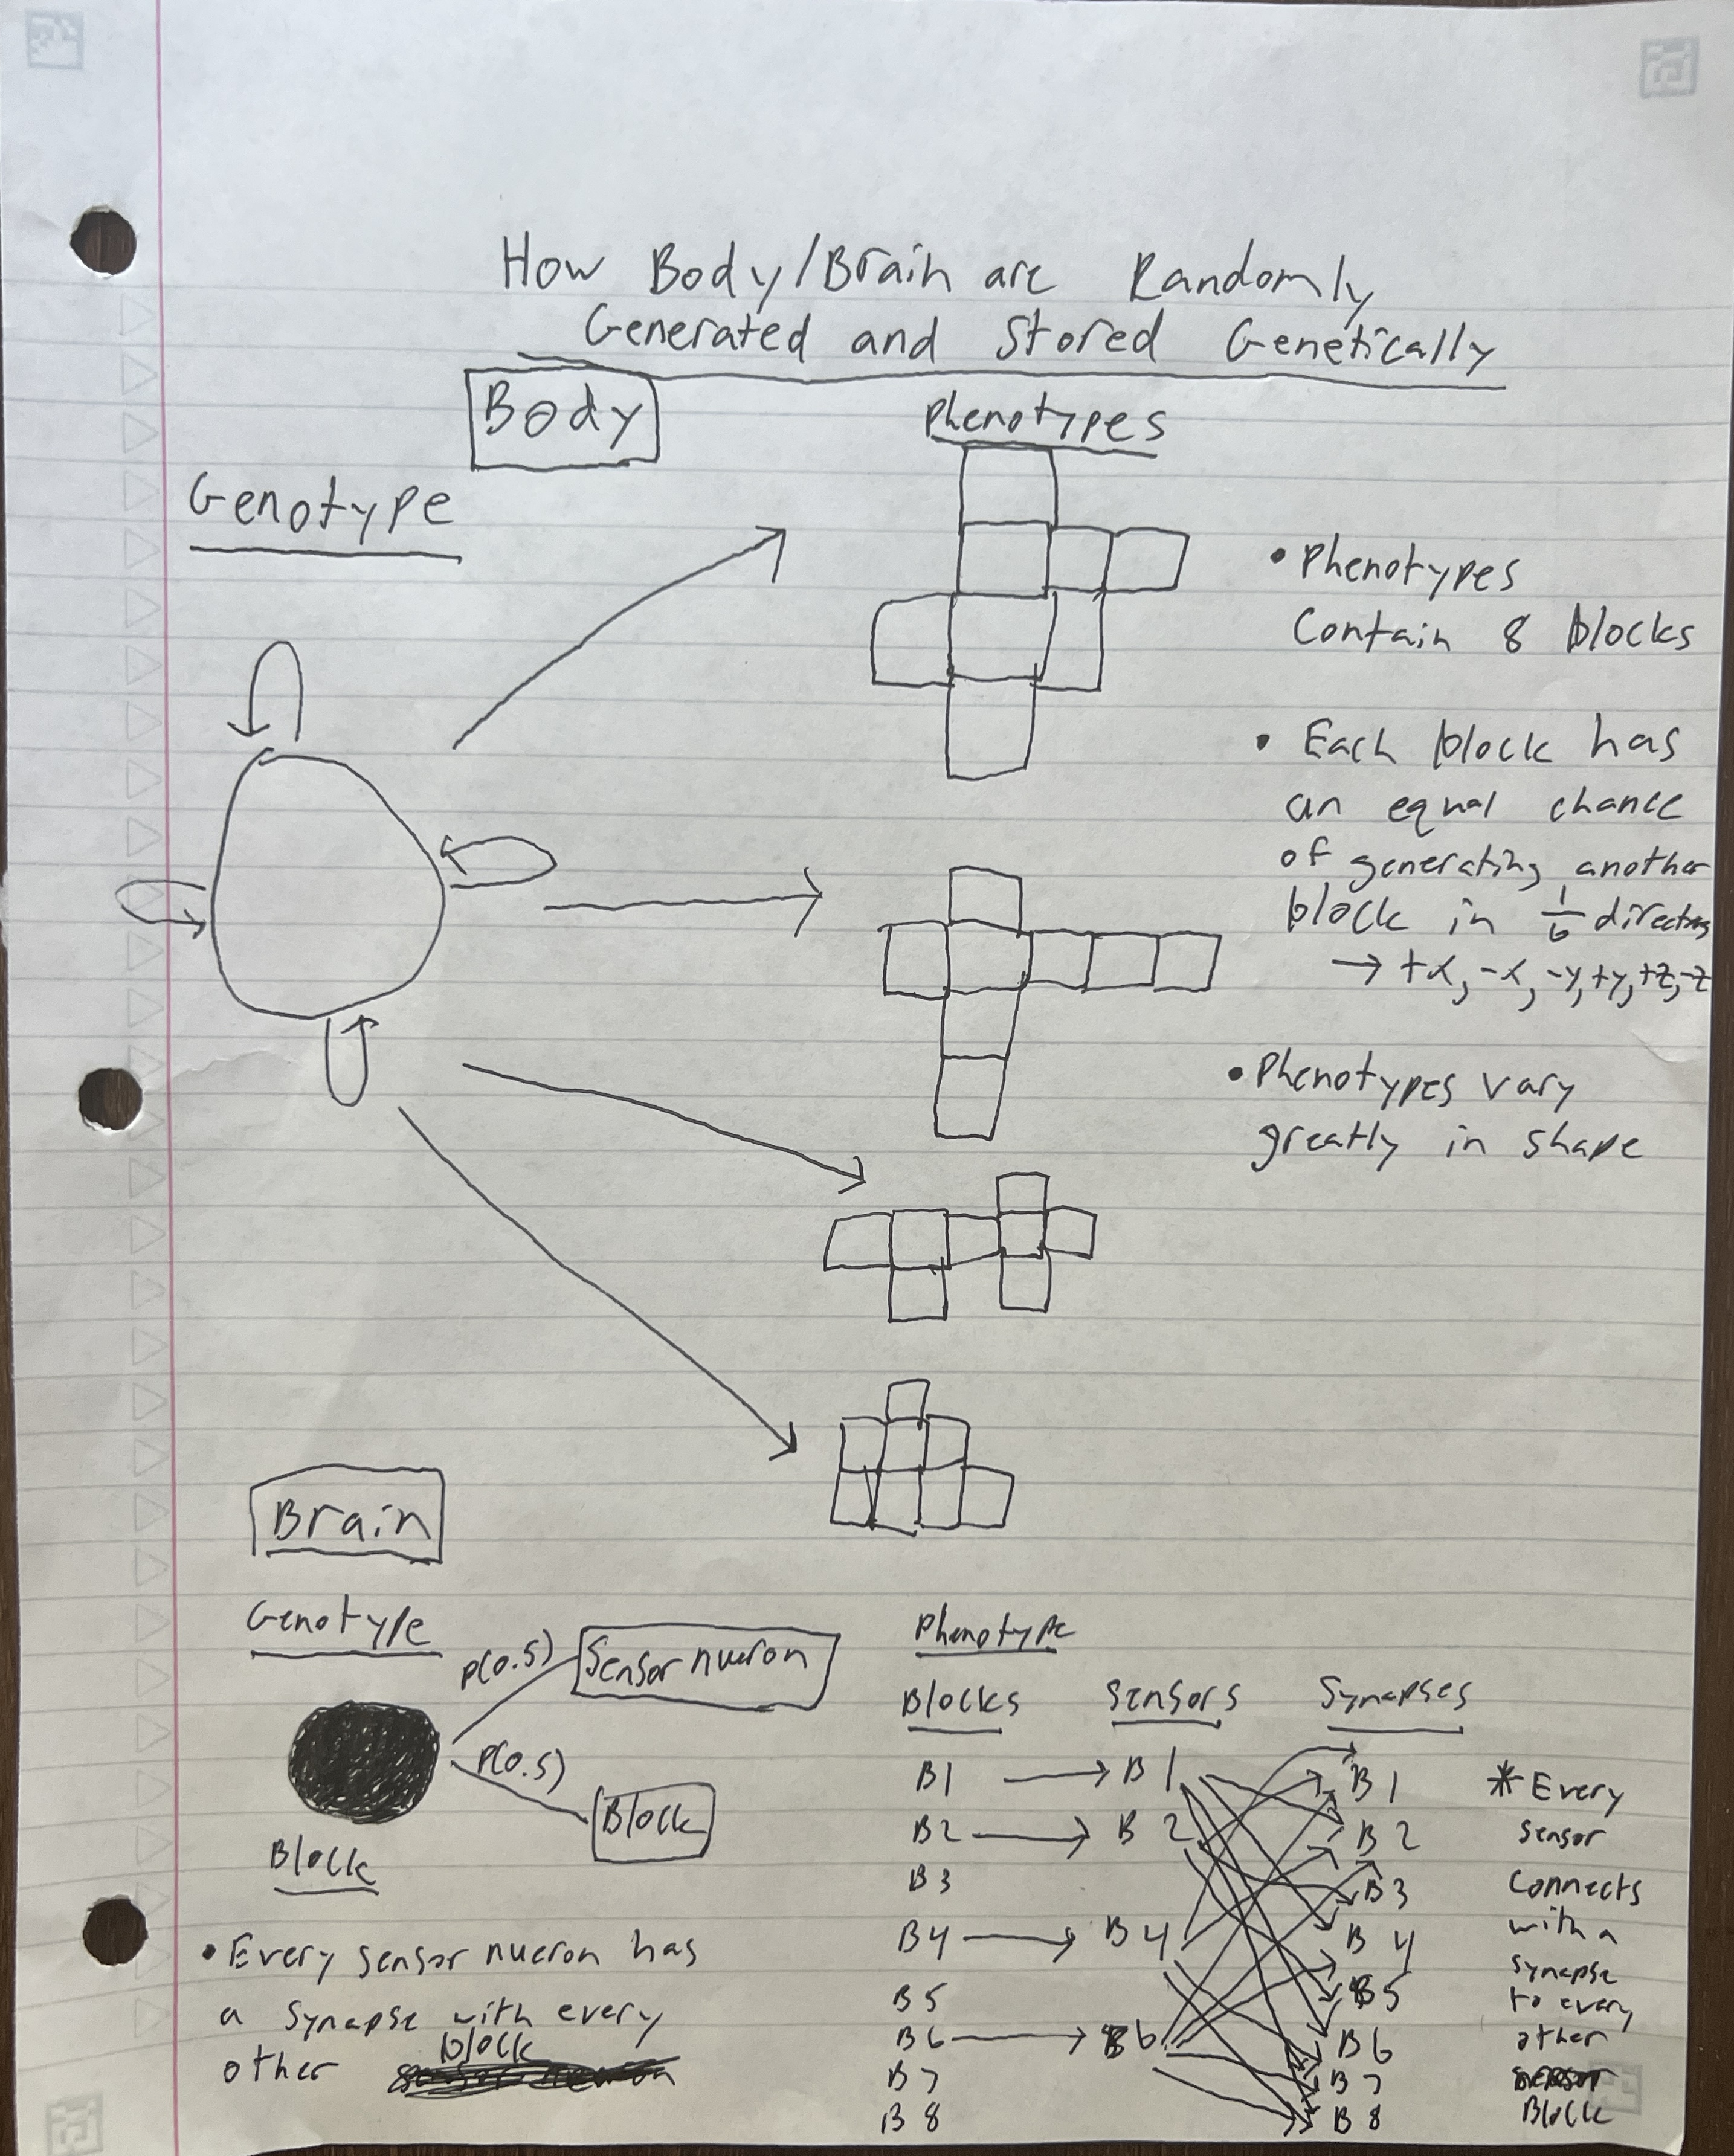 How Body/Brain are Randomly
Generated and Stored Genetically
Body
Phenotypes
Genotype
• Phenotypes
Contain 8 blocks
• Each block has
an equal chance
of generating another
block in 1/6 directions
→ +x, -x, -y, +y, +z, -z
• Phenotypes vary
greatly in shape
Brain
Genotype
P(0.5)
Sensor nueron
P(0.5)
Block
Block
• Every sensor nueron has
a synapse with every
other block
Phenotype
Blocks Sensors Synapses
B1 → B1 B1
B2 → B2 B2
B3 B3
B4 → B4 B4
B5 B5
B6 → B6 B6
B7 B7
B8 B8
* Every
sensor
connects
with a
synapse
to every
other
Block